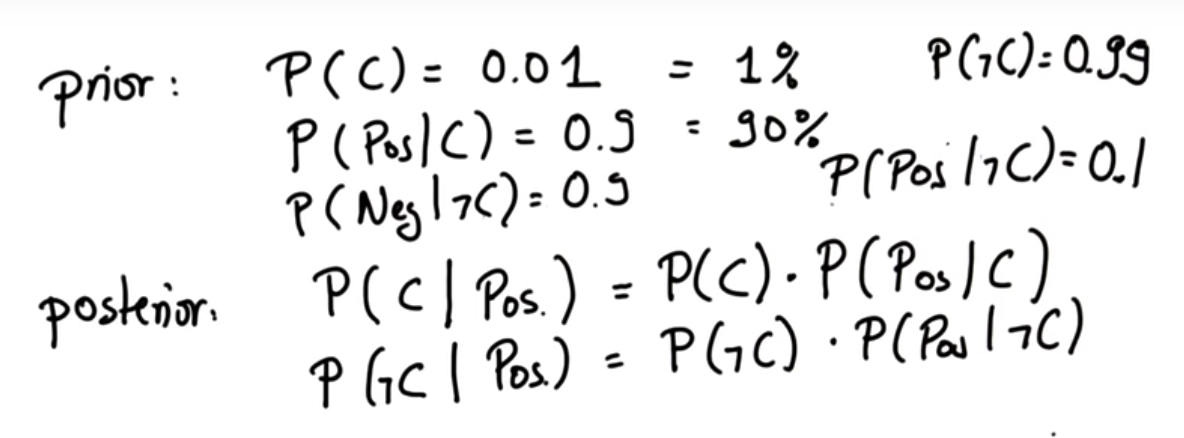 prior: P(C) = 0.01 = 1% P(¬C) = 0.99
P(Pos|C) = 0.9 = 90% P(Pos|¬C) = 0.1
P(Neg|¬C) = 0.9
posterior. P(C|Pos.) = P(C) · P(Pos|C)
P(¬C|Pos.) = P(¬C) · P(Pos|¬C)